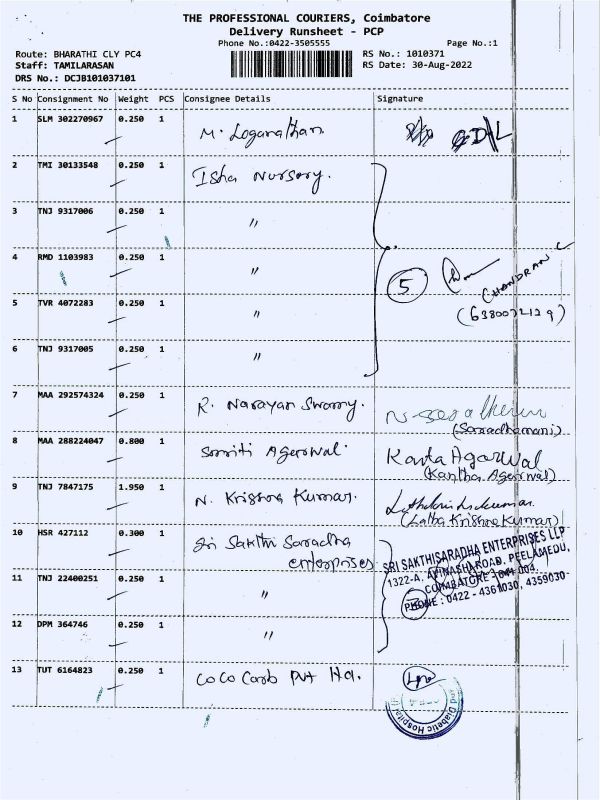 THE PROFESSIONAL COURIERS, Coimbatore
Delivery Runsheet - PCP
Phone No.:0422-3505555
Page No.:1
Route: BHARATHI CLY PC4
RS No.: 1010371
Staff: TAMILARASAN
RS Date: 30-Aug-2022
DRS No.: DCJB101037101
S No Consignment No Weight PCS Consignee Details Signature
1 SLM 302270967 0.250 1 M. Loganathan
2 TMI 30133548 0.250 1 Isha Nursery.
3 TNJ 9317006 0.250 1 "
4 RMD 1103983 0.250 1 "
5 CHANDRAN C
5 TVR 4072283 0.250 1 "
6 TNJ 9317005 0.250 1 "
7 MAA 292574324 0.250 1 R. Narayan Swamy.
(Saradhamani)
8 MAA 288224047 0.800 1 Smriti Agerwal. Kanta Agarwal
(Kantha Agerwal)
9 TNJ 7847175 1.950 1 N. Krishna Kumar.
(Latha Krishna Kumar)
10 HSR 427112 0.300 1 Sri Sakthi Saradha
enterprises
SRI SAKTHISARADHA ENTERPRISES LLP
1322-A, AVINASHI ROAD, PEELAMEDU,
COIMBATORE - 641 004.
PHONE : 0422 - 4361030, 4359030
11 TNJ 22400251 0.250 1 "
12 DPM 364746 0.250 1 "
13 TUT 6164823 0.250 1 CoCo Carb Pvt
Diabetic Hospital